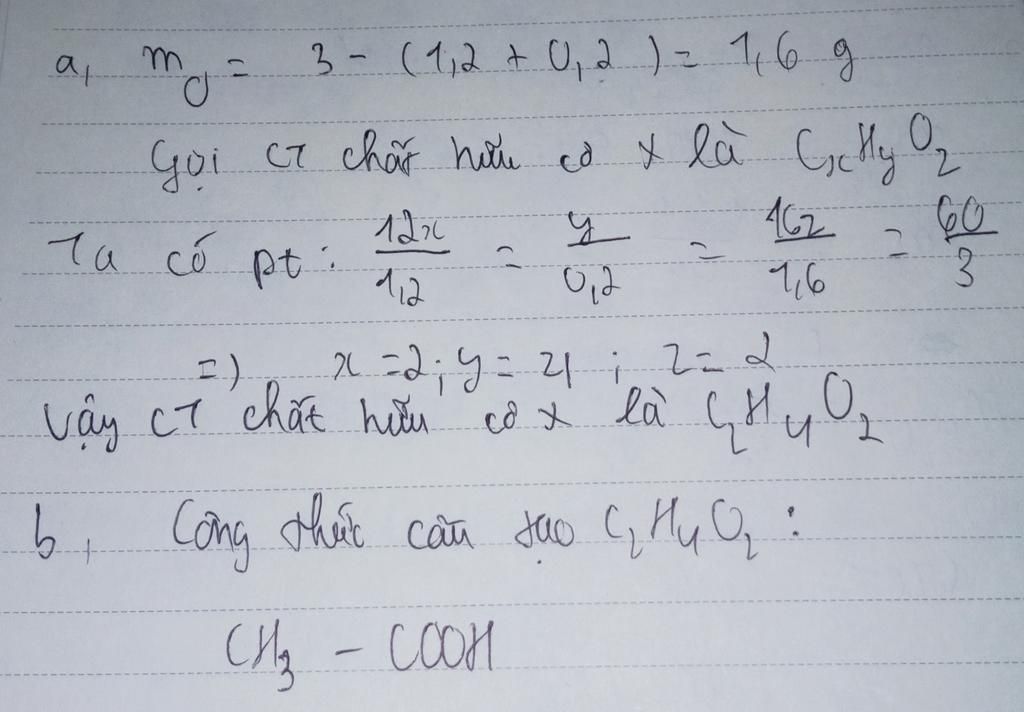 a, mO = 3 - (1,2 + 0,2) = 1,6 g
Gọi CT chất hữu cơ X là CxHyOz
Ta có pt: 12x/1,2 = y/0,2 = 16z/1,6 = 60/3
=) x = 2; y = 4; z = 2
Vậy CT chất hữu cơ X là C2H4O2
b, Công thức cấu tạo C2H4O2:
CH3 - COOH